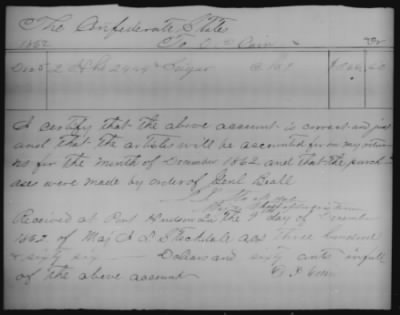 The Confederate States
1862 To O. Cain Dr
Dec 5 2 Hhds 2444 lbs Sugar @ 15¢
I certify that the above account is correct and just
and that the articles will be accounted for on my return
no for the month of December 1862 and that the purch
ases were made by order of Genl Beall
Received at Port Hudson La the day of December
1862 of Maj J L Stockdale acs three hundred
& sixty six — Dollars and sixty cnts in full
of the above account